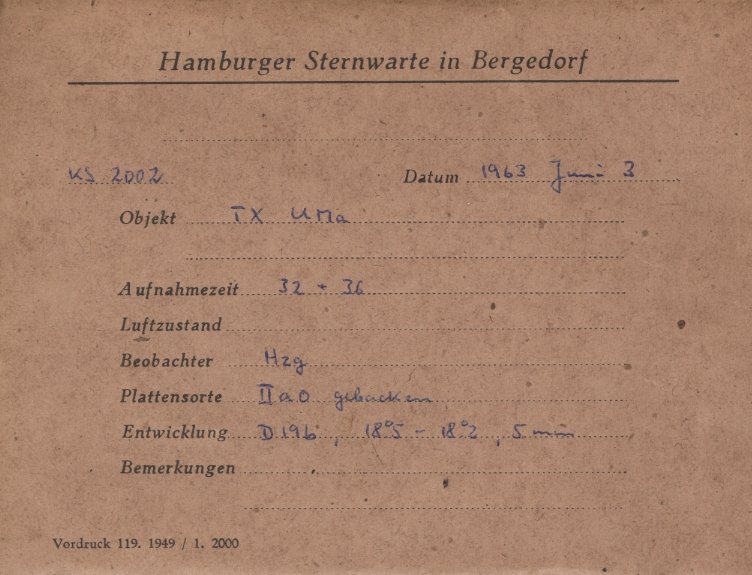 Hamburger Sternwarte in Bergedorf
KS 2002 Datum 1963 Juni 3
Objekt TX UMa
Aufnahmezeit 32 + 36
Luftzustand
Beobachter Hzg
Plattensorte IIaO gebacken
Entwicklung D 19b, 18°5 - 18°2, 5 min
Bemerkungen
Vordruck 119. 1949 / 1. 2000